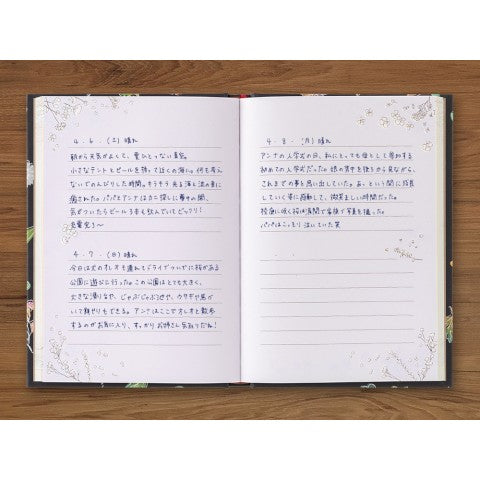 4.6.(土) 晴れ
朝から天気がよくて、雲ひとつない青空。
小さなテントとビールを持って近くの海に。何も考え
ないでのんびりした時間。キラキラ光る海と波の音に
癒された。パパとアンナはカニ探しに夢中の間、
気がついたらビール3本も飲んでいてビックリ!
充電完了〜
4.7.(日) 晴れ
今日は犬のオレオも連れてドライブついでに桜がある
公園に遊びに行った。この公園はとても大きく、
大きな滑り台や、じゃぶじゃぶ池や、ウサギや馬が
いて餌やりもできる。アンナはここでオレオと散歩
するのがお気に入り。すっかりお姉さん気取りだね!
4.8.(月) 晴れ
アンナの入学式の日。私にとっても母として参加する
初めての入学式だった。娘の背中を後ろから見ながら、
これまでの事を思い出していた。あっという間に成長
していく姿に感動して、微笑ましい時間だった。
校庭に咲く桜は満開で家族で写真を撮った。
パパはこっそり泣いていた笑